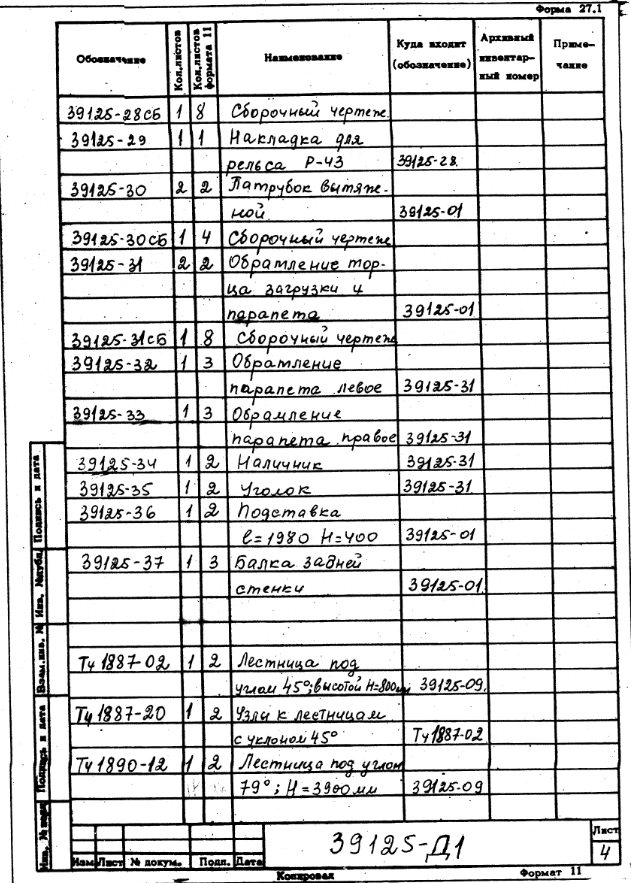 Форма 27.1
Обозначение Кол.листов Кол.листов формата 11 Наименование Куда входит (обозначение) Архивный инвентарный номер Примечание
39125-28СБ 1 8 Сборочный чертеж
39125-29 1 1 Накладка для
рельса Р-43 39125-28
39125-30 2 2 Патрубок вытяж-
ной 39125-01
39125-30СБ 1 4 Сборочный чертеж
39125-31 2 2 Обрамление тор-
ца загрузки и
парапета 39125-01
39125-31СБ 1 8 Сборочный чертеж
39125-32 1 3 Обрамление
парапета левое 39125-31
39125-33 1 3 Обрамление
парапета правое 39125-31
39125-34 1 2 Наличник 39125-31
39125-35 1 2 Уголок 39125-31
39125-36 1 2 Подставка
ℓ=1980 H=400 39125-01
39125-37 1 3 Балка задней
стенки 39125-01
Т41887-02 1 2 Лестница под
углом 45°; высотой H=800мм 39125-09
Т41887-20 1 2 Узлы к лестницам
с уклоном 45° Т41887-02
Т41890-12 1 2 Лестница под углом
79°; H=3900мм 39125-09
Подпись и дата
Инв. №дубл.
Взам.инв. №
Подпись и дата
Инв. № подл.
39125-Д1
Лист
4
Изм Лист № докум. Подп. Дата
Копировал Формат 11